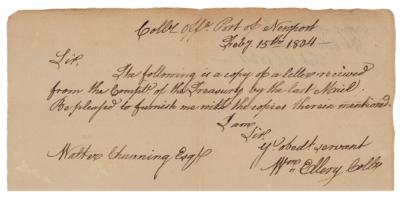 Coll.rs Off. Port of Newport
Feby 15th 1804 —
Sir,
The following is a copy of a letter received
from the Compt.r of the Treasury by the last Mail.
Be pleased to furnish me with the copies therein mentioned.
I am
Sir,
Yr obedt. servant
Walter Channing Esqr.
Wm Ellery Collr